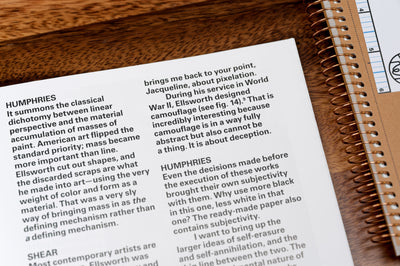 HUMPHRIES
It summons the classical
dichotomy between linear
perspective and the material
accumulation of masses of
paint. American art flipped the
standard priority; mass became
more important than line.
Ellsworth cut out shapes, and
the discarded scraps are what
he made into art—using the very
weight of color and form as a
material. That was a very sly
way of bringing mass in as the
defining mechanism rather than
a defining mechanism.
SHEAR
Most contemporary artists are
Ellsworth was
brings me back to your point,
Jacqueline, about pixelation.
During his service in World
War II, Ellsworth designed
camouflage (see fig. 14).⁹ That is
incredibly interesting because
camouflage is in a way fully
abstract but also cannot be
a thing. It is about deception.
HUMPHRIES
Even the decisions made before
the execution of these works
brought their own subjectivity
with them. Why use more black
in this one, less white in that
one? The ready-made paper also
contains subjectivity.
I want to bring up the
larger ideas of self-erasure
and self-annihilation, and the
line between the two. The
mental nature of